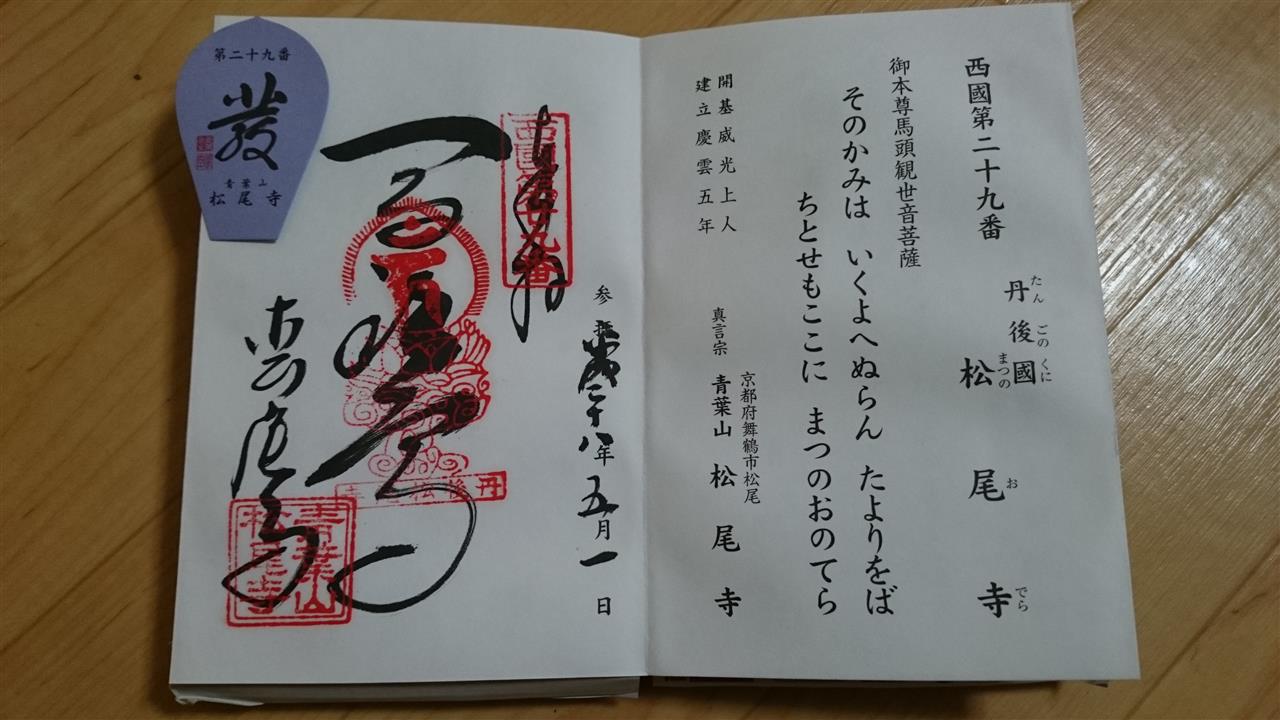 西國第二十九番
丹後國
たん ごの くに
松尾寺
まつの お でら
御本尊馬頭観世音菩薩
そのかみは いくよへぬらん たよりをば
ちとせもここに まつのおのてら
開基威光上人
建立慶雲五年
京都府舞鶴市松尾
真言宗 青葉山 松尾寺
参拝平成二十八年五月一日
奉拝
西國第廿九番
青葉山
松尾寺
第二十九番
青葉山
松尾寺